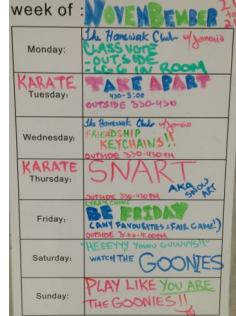 week of : NOVEMBEMBER
Monday:
The Homework Club w/
CLASS VOTE
- OUTSIDE
IN ROOM
KARATE
Tuesday:
TAKE APART
430-5:00
OUTSIDE 330-430
Wednesday:
The Homework Club w/
FRIENDSHIP
KEYCHAINS!!
OUTSIDE 330-430PM
KARATE
Thursday:
SNART
AKA
SNOW
ART
OUTSIDE 330-430PM
Friday:
BE FRIDAY
(ANY FAVOURITES = FAIR GAME!)
OUTSIDE 3:30-4:00PM
Saturday:
HEEEYY YOUUU GUUUYS!!
WATCH THE GOONIES
Sunday:
PLAY LIKE YOU ARE
THE GOONIES!!